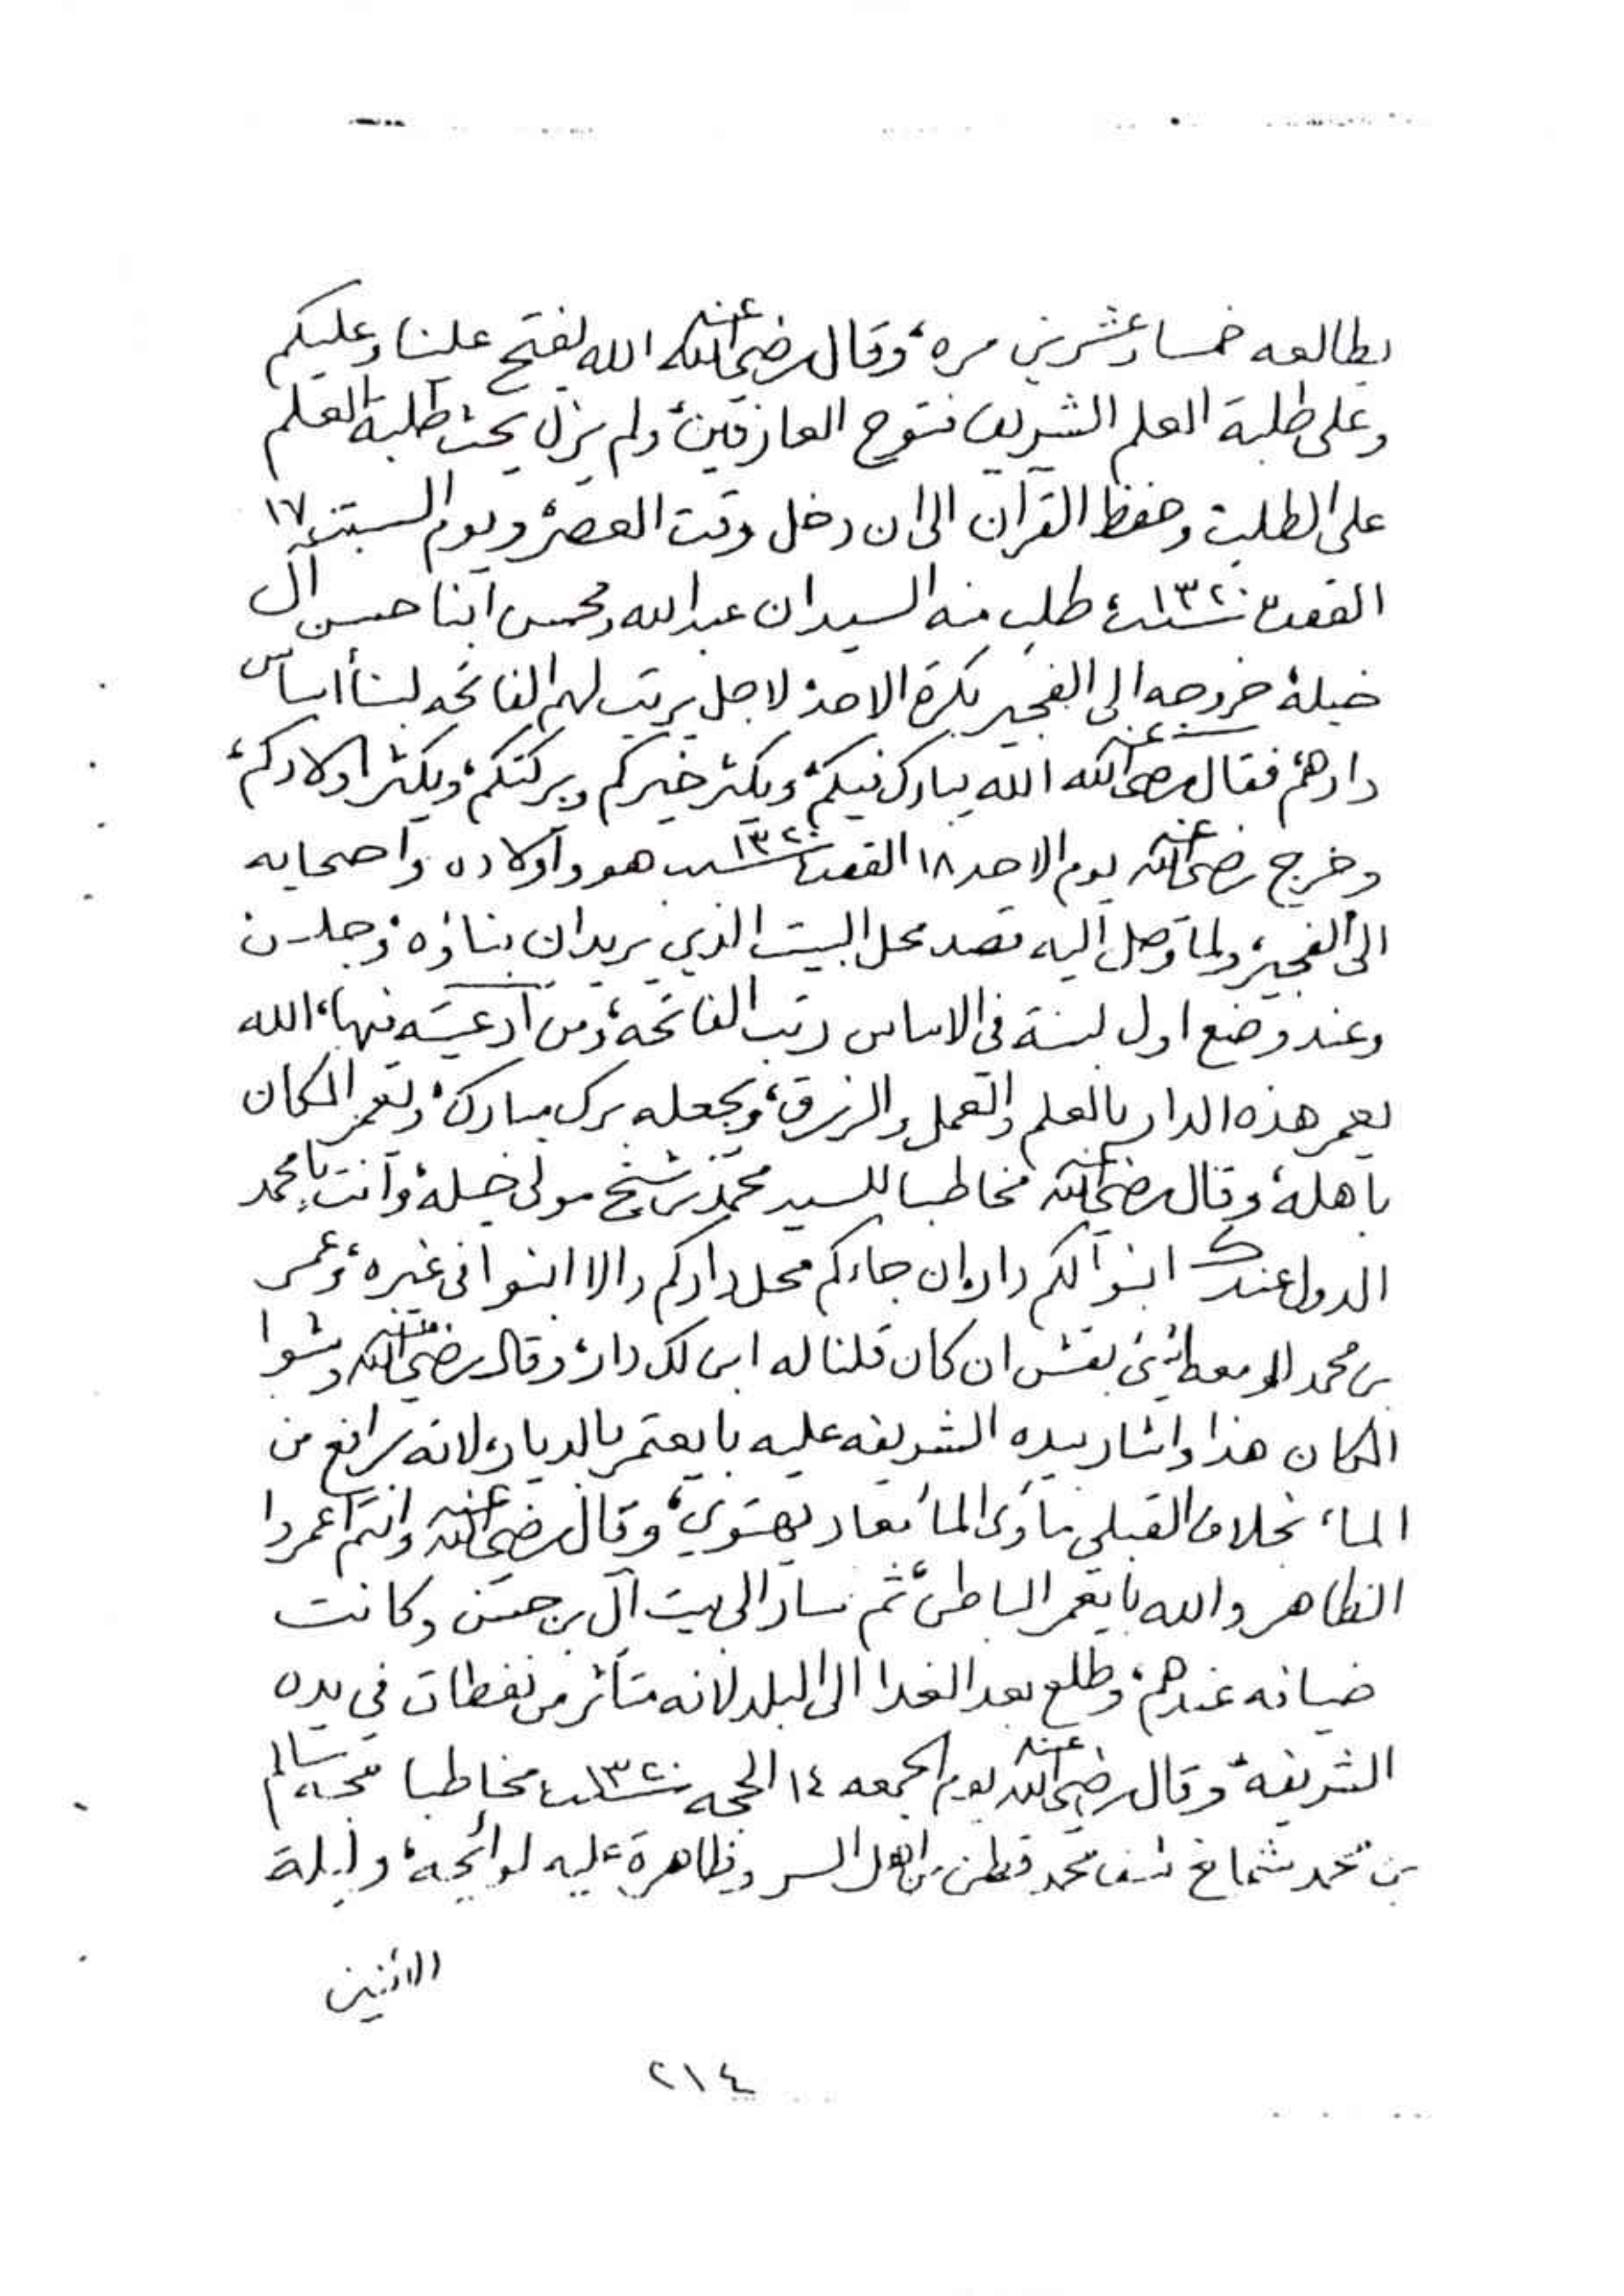 يطالعه خمسا وعشرين مره، وقال رضي الله عنه الله يفتح علينا وعليكم
وعلى طلبة العلم الشريف فتوح العارفين، ولم يزل يحث طلبة العلم
على الطلب وحفظ القرآن الى ان دخل وقت العصر، ويوم السبت ١٧
القعده سنة ١٣٢٠ طلب منه السيدان عبدالله ومحسن ابنا حسن آل
خيلة خروجه الى الفجير بكرة الاحد، لاجل يرتب لهم الفاتحه لبنا أساس
دارهم، فقال رضي الله عنه الله يبارك فيكم، ويكثر خيركم وبركتكم، ويكثر اولادكم،
وخرج رضي الله عنه يوم الاحد ١٨ القعده سنة ١٣٢٠ هو وأولاده واصحابه
الى الفجير، ولما وصل اليه قصد محل البيت الذي يريدان بناؤه، وجلسن
وعند وضع اول لبنة في الاساس رتب الفاتحة، ومن أدعيته فيها، الله
يعمر هذه الدار بالعلم والعمل والرزق، ويجعله برك مبارك، ويعمر المكان
باهله، وقال رضي الله عنه مخاطبا للسيد محمد بن شيخ مولى خيله، وأنت يا محمد
الدول عندك ابنوا لكم دار، وان جاءكم محل داركم والا ابنوا في غيره، وعمر
بن محمد ان كان قلنا له ابن لك دار، وقال رضي الله عنه وشوا
المكان هذا واشار بيده الشريفه عليه بايعتمر بالديار، لانه رافع من
الماء، بخلاف القبلي مأوى الماء وقال رضي الله عنه وانتم اعمروا
الظاهر والله بايعمر الباطن، ثم سار الى بيت آل بن حسن وكانت
ضيافه عندهم، وطلع بعد الغدا الى البلد لانه متأثر من نفطات في يده
الشريفه، وقال رضي الله عنه يوم الجمعه ١٤ الحجه سنة ١٣٢٠ مخاطبا محبه سالم
بن محمد شماخ محمد قطن من اهل السر وظاهرة عليه لوائحه، وليلة
الاثنين
٢١٤